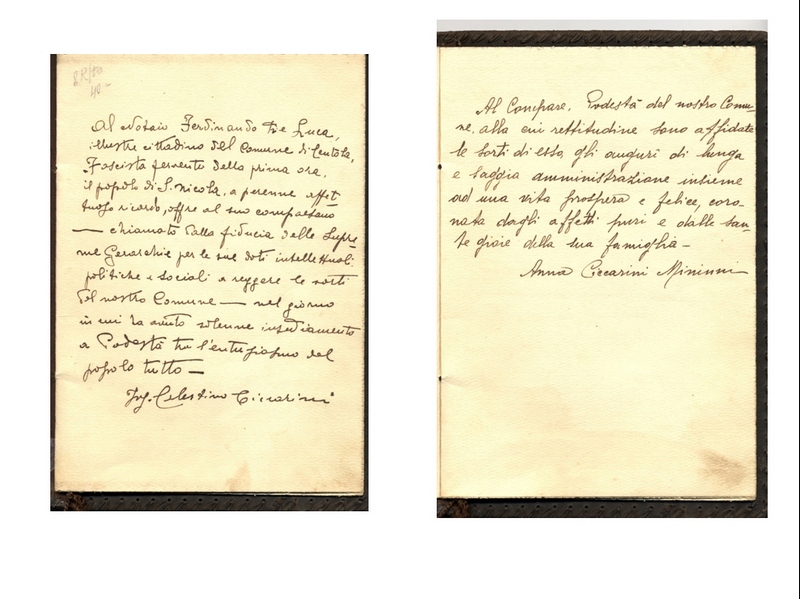 Al Notaio Ferdinando De Luca,
illustre cittadino del Comune di Centola,
Fascista fervente della prima ora,
il popolo di S. Nicola, a perenne affet-
tuoso ricordo, offre al suo compaesano
— chiamato dalla fiducia delle Supre-
me Gerarchie per le sue doti intellettuali
politiche e sociali a reggere le sorti
del nostro Comune — nel giorno
in cui ha avuto solenne insediamento
a Podestà tra l'entusiasmo del
popolo tutto —
Ing. Celestino Ciccarini
Al Compare, Podestà del nostro Comu-
ne, alla cui rettitudine sono affidate
le sorti di esso, gli auguri di lunga
e saggia amministrazione insieme
ad una vita prospera e felice, coro-
nata dagli affetti puri e dalle san-
te gioie della sua famiglia —
Anna Ciccarini Mininni